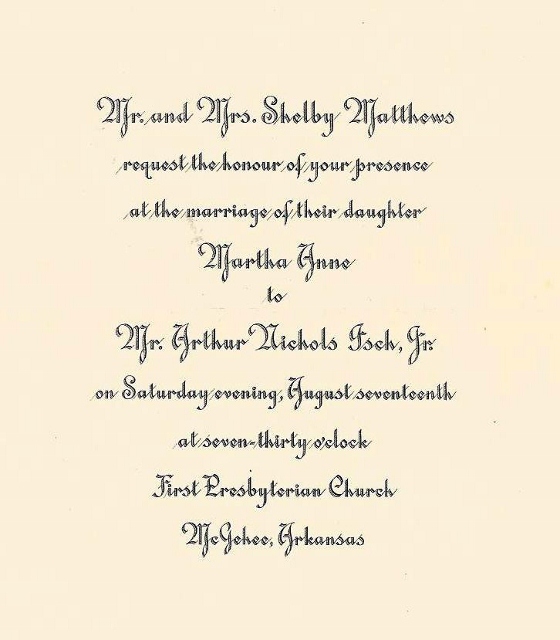 Mr. and Mrs. Shelby Matthews
request the honour of your presence
at the marriage of their daughter
Martha Anne
to
Mr. Arthur Nichols Isch, Jr.
on Saturday evening, August seventeenth
at seven-thirty o'clock
First Presbyterian Church
McGehee, Arkansas